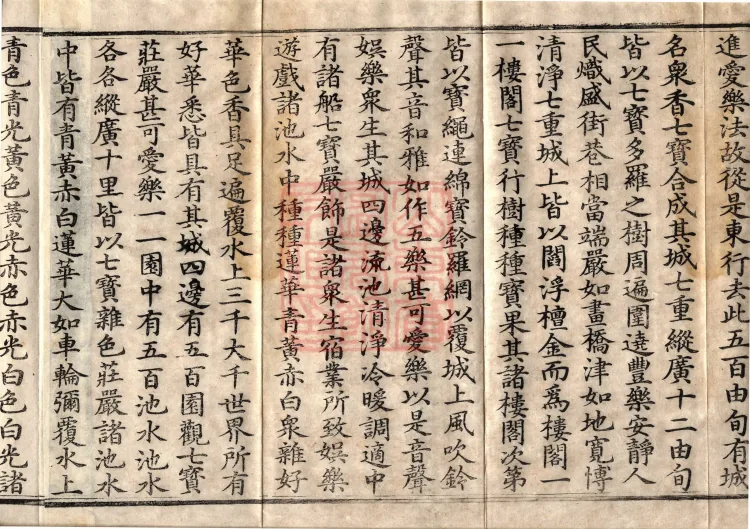 進愛樂法故從是東行去此五百由旬有城
名衆香七寶合成其城七重縱廣十二由旬
皆以七寶多羅之樹周遍圍遶豐樂安靜人
民熾盛街巷相當端嚴如畫橋津如地寬愽
清淨七重城上皆以閻浮檀金而爲樓閣一
一樓閣七寶行樹種種寶果其諸樓閣次第
皆以寶繩連綿寶鈴羅網以覆城上風吹鈴
聲其音和雅如作五樂甚可愛樂以是音聲
娛樂衆生其城四邊流池清淨冷暖調適中
有諸船七寶嚴飾是諸衆生宿業所致娛樂
遊戲諸池水中種種蓮華青黃赤白衆雜好
華色香具足遍覆水上三千大千世界所有
好華悉皆具有其城四邊有五百園觀七寶
莊嚴甚可愛樂一一園中有五百池水池水
各各縱廣十里皆以七寶雜色莊嚴諸池水
中皆有青黃赤白蓮華大如車輪彌覆水上
青色青光黃色黃光赤色赤光白色白光諸